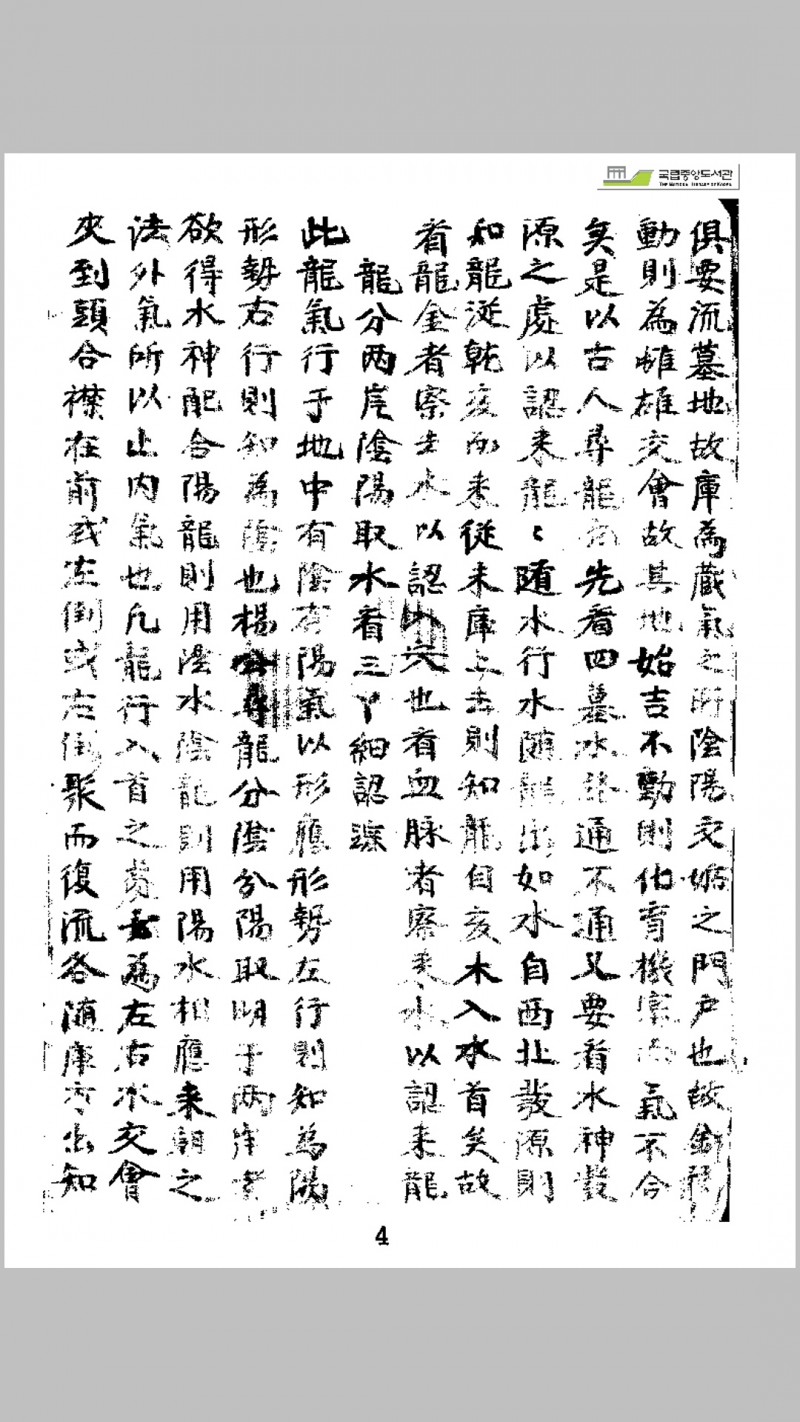 국립중앙도서관
THE NATIONAL LIBRARY OF KOREA
俱要流墓地故庫為藏氣之所陰陽交媾之門戶也故
動則為雌雄交會故其地始吉不動則化育機 氣不合
矣是以古人尋龍 先看四墓水路通不通又要看水神發
源之處以認来龍〻随水行水随龍出如水自西北發源則
知龍從乾亥而来從未庫上去則知龍自亥木入水首矣故
看龍金者察去水以認 穴也看血脉者察来水以認来龍
龍分两岸陰陽取水看三丫細認
此龍氣行于地中有陰有陽氣以形應形勢左行則知為陽
形勢右行則知為陰也楊 尋龍分陰分陽取明于两岸
欲得水神配合陽龍則用陰水陰龍則用陽水相應来朝之
法外氣所以止内氣也凡龍行入首之處 為左右水交會
夾到頭合襟在前或左倒或右倒聚而復流各随庫方出知
4